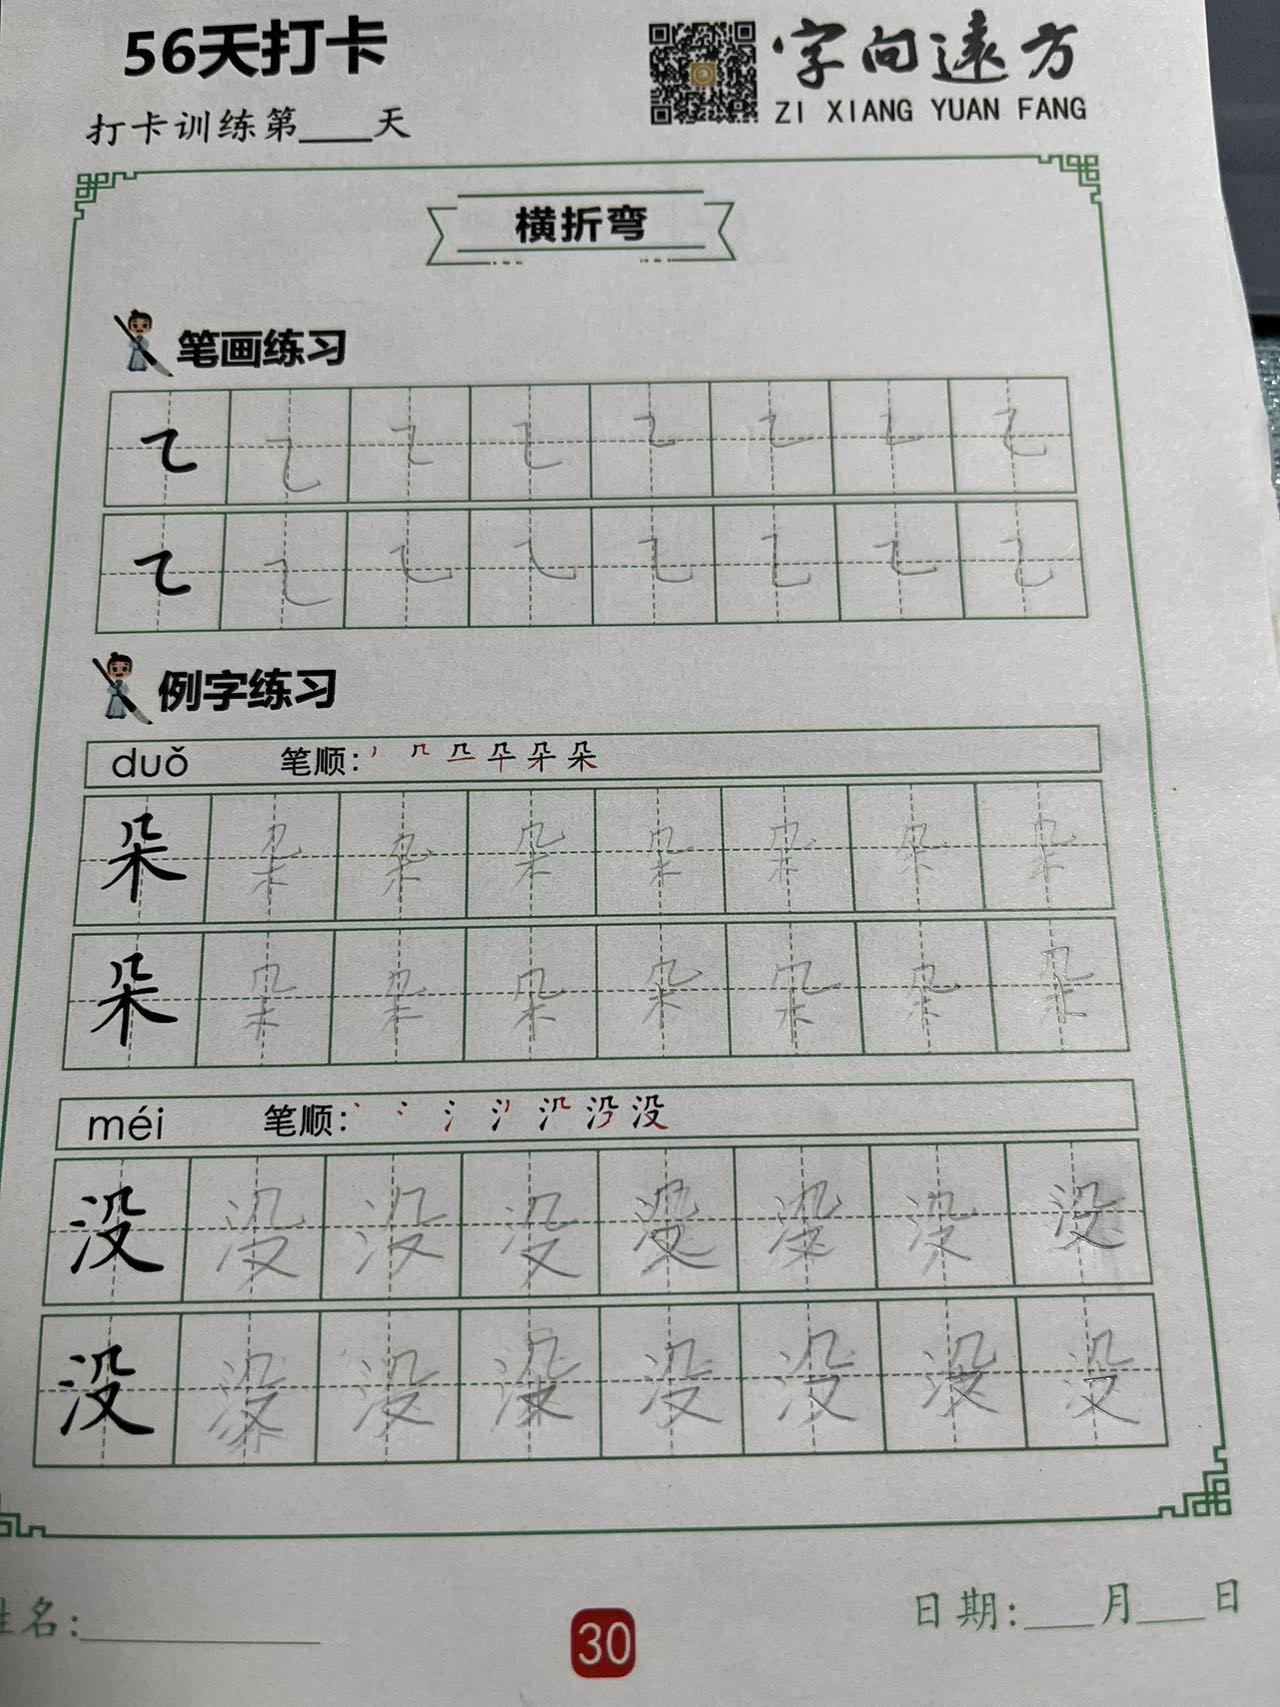 56天打卡
字向远方
ZI XIANG YUAN FANG
打卡训练第____天
横折弯
笔画练习
㇍ ㇍ ㇍ ㇍ ㇍ ㇍ ㇍ ㇍
㇍ ㇍ ㇍ ㇍ ㇍ ㇍ ㇍ ㇍
例字练习
duǒ 笔顺:
朵 朵 朵 朵 朵 朵 朵 朵
朵 朵 朵 朵 朵 朵 朵 朵
méi 笔顺:
没 没 没 没 没 没 没 没
没 没 没 没 没 没 没 没
姓名:____________
30
日期:____月____日